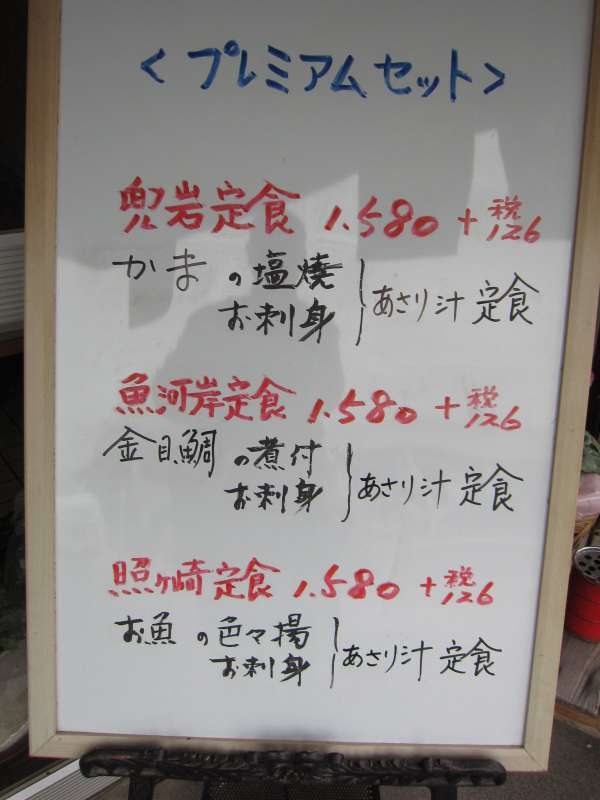 <プレミアムセット>
兜岩定食 1.580+税126
かまの塩焼
お刺身 あさり汁定食
魚河岸定食 1.580+税126
金目鯛の煮付
お刺身 あさり汁定食
照ヶ崎定食 1.580+税126
お魚の色々揚
お刺身 あさり汁定食